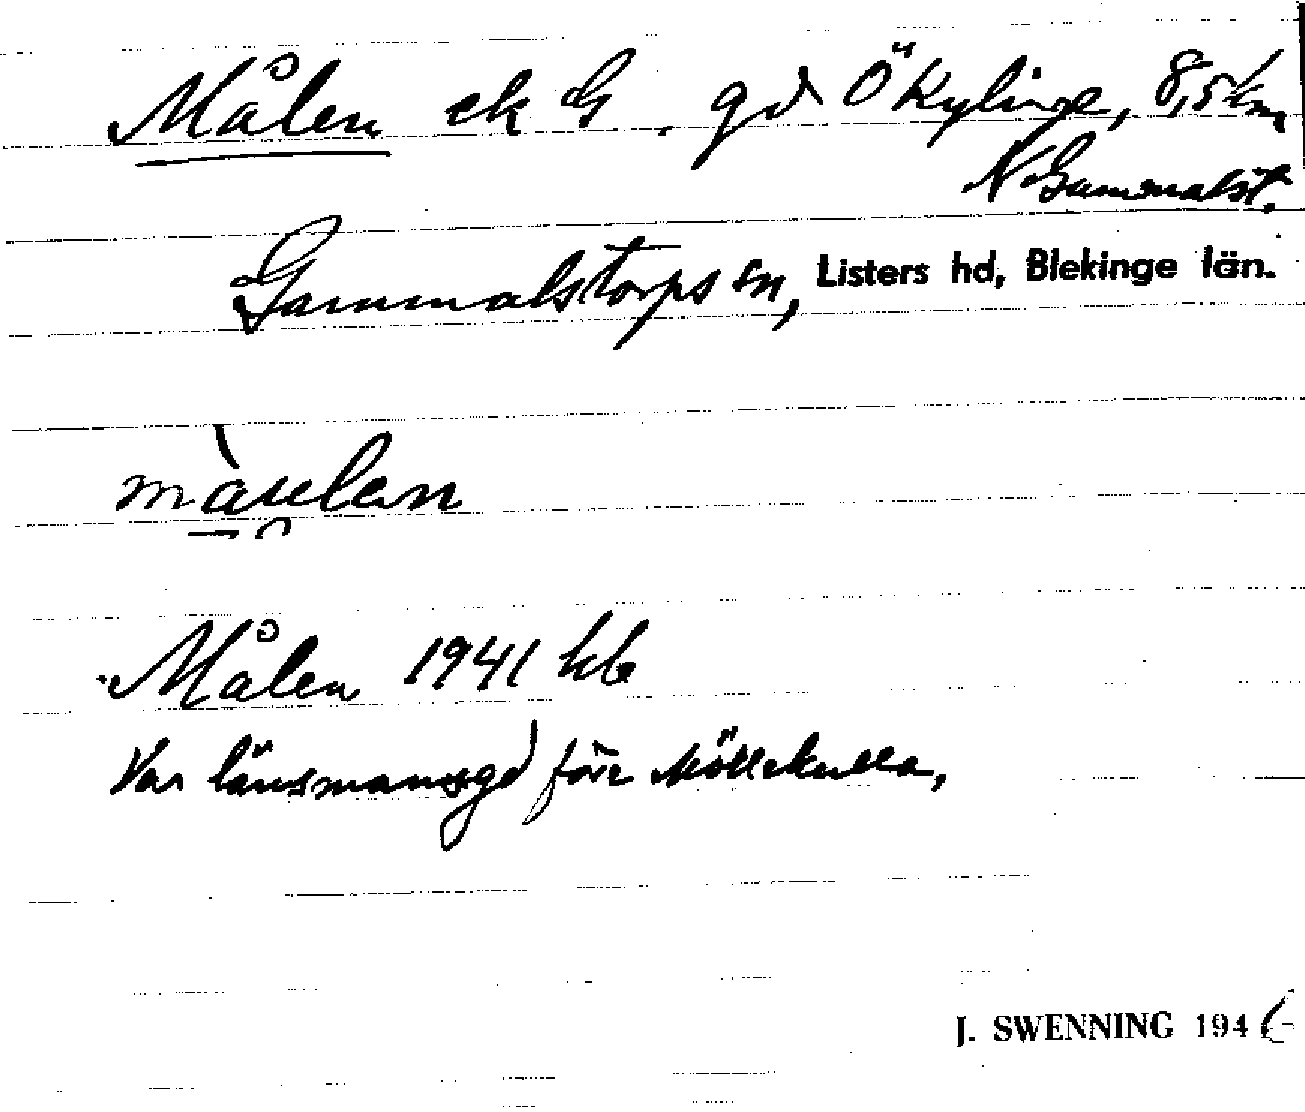 Målen ek G. gd Ö Kylinge, 8,5 km
N Gammalst.
Gammalstorps sn, Listers hd, Blekinge län.
màuelan
Målen 1941 kb
Var länsmansgd före Möllekulla,
J. SWENNING 1946